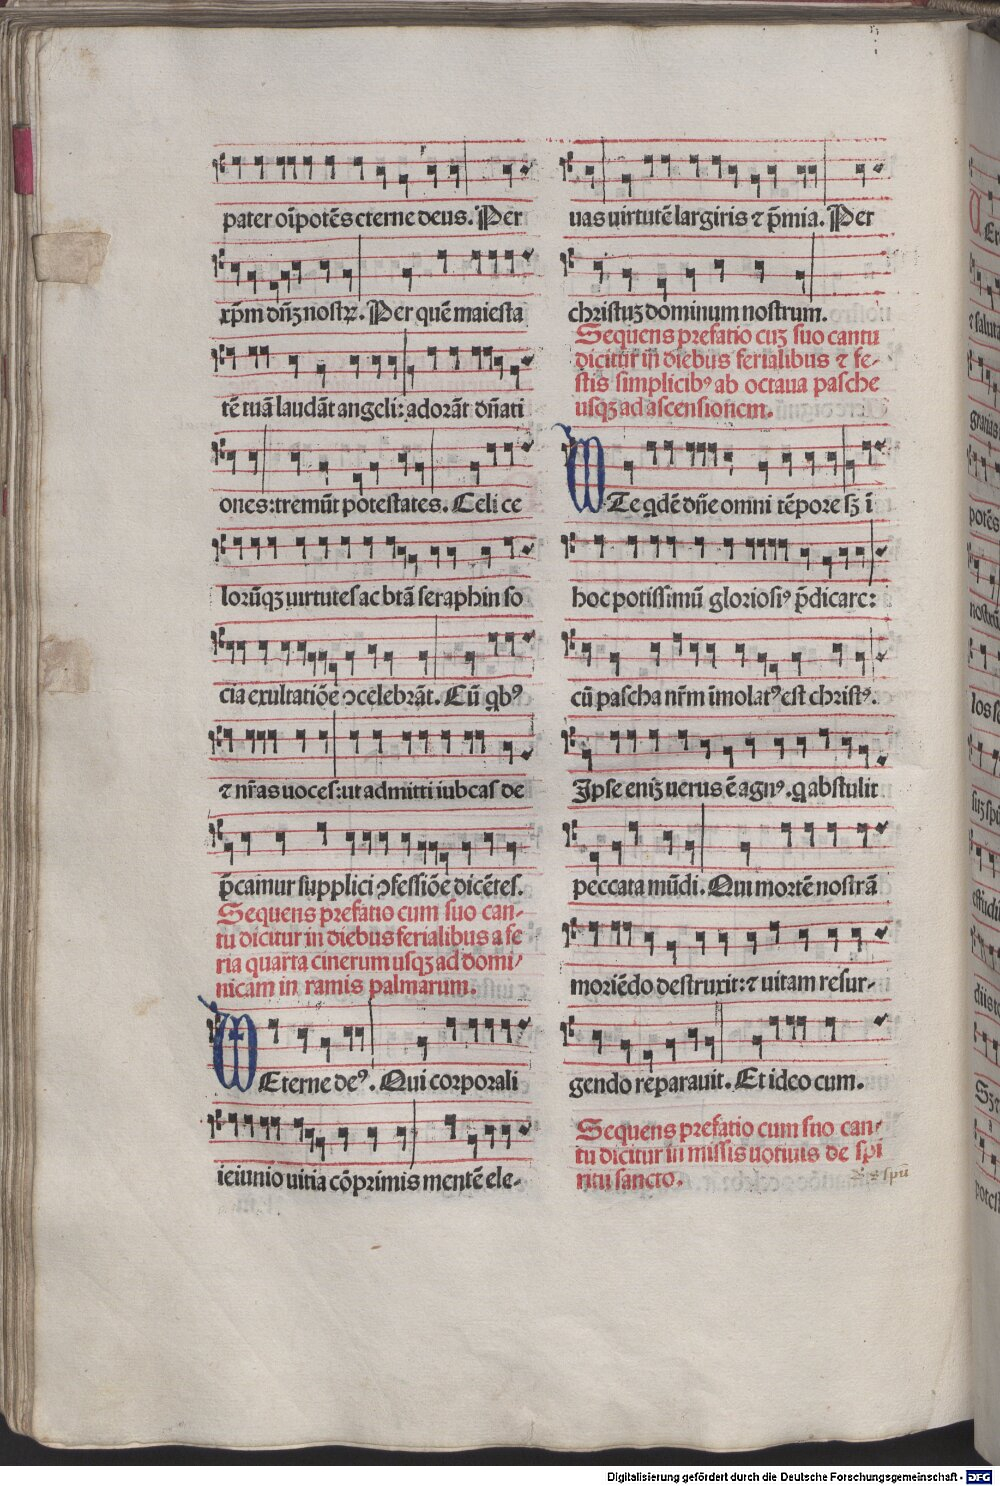 pater oīpotēs eterne deus. Per
xp̄m dn̄ꝫ nostꝝ. Per quē maiesta
tē tuā laudāt angeli: adorāt dn̄ati
ones: tremūt potestates. Celi ce
lorūqꝫ uirtutes ac btā seraphin so
cia exultatiōe ꝯcelebrāt. Cū qbꝰ
⁊ nr̄as uoces: ut admitti iubeas de
p̄camur supplici ꝯfessiōe dicētes.
Sequens prefatio cum suo can-
tu dicitur in diebus ferialibus a fe
ria quarta cinerum usqꝫ ad domi/
nicam in ramis palmarum.
Eterne deꝰ. Qui corporali
ieiunio uitia cōprimis mentē ele-
uas uirtutē largiris ⁊ p̄mia. Per
christuꝫ dominum nostrum.
Sequens prefatio cuꝫ suo cantu
dicitur in diebus ferialibus ⁊ fe-
stis simplicibꝰ ab octaua pasche
usqꝫ ad ascensionem.
Te qdē dn̄e omni tēpore sꝫ ī
hoc potissimū gloriosiꝰ p̄dicare:
cū pascha nr̄m īmolatꝰ est christꝰ.
Ipse eniꝫ uerus ē agnꝰ. q abstulit
peccata mūdi. Qui mortē nostrā
moriēdo destruxit: ⁊ uitam resur-
gendo reparauit. Et ideo cum.
Sequens prefatio cum suo can/
tu dicitur in missis uotiuis de spi
ritu sancto.
Digitalisierung gefördert durch die Deutsche Forschungsgemeinschaft - DFG